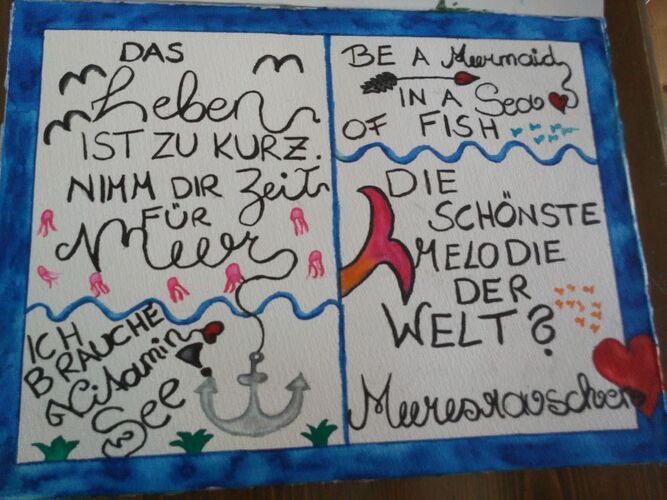 DAS
Leben
IST ZU KURZ.
NIMM DIR Zeit
FÜR
Meer
ICH
BRAUCHE
Vitamin
See!
BE A Mermaid
IN A Sea
OF FISH
DIE
SCHÖNSTE
MELODIE
DER
WELT?
Meeresrauschen